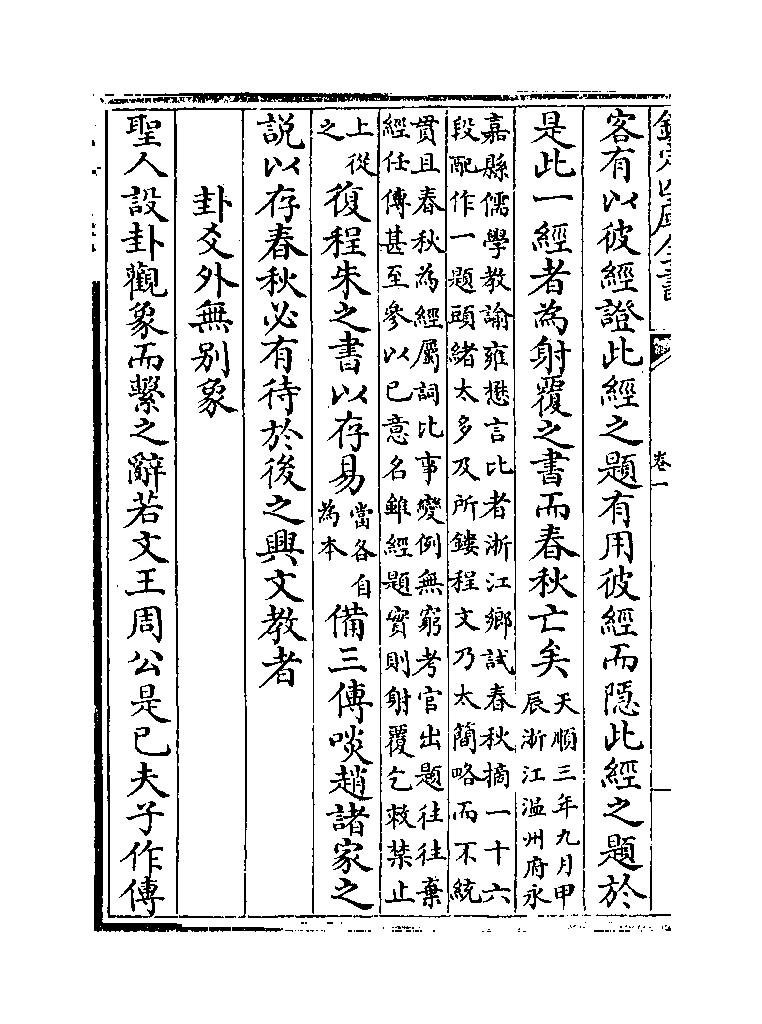 欽定四庫全書 卷一
客有以彼經證此經之題有用彼經而隱此經之題於
是此一經者為射覆之書而春秋亡矣
天順三年九月甲
辰浙江温州府永
嘉縣儒學教諭雍懋言比者浙江鄉試春秋摘一十六
段配作一題頭緒太多及所鏤程文乃太簡略而不統
貫且春秋為經屬詞比事變例無窮考官出題往往棄
經任傳甚至參以已意名雖經題實則射覆乞敕禁止
上從
之
復程朱之書以存易
當各自
為本
備三傳啖趙諸家之
説以存春秋必有待於後之興文教者
卦爻外無别象
聖人設卦觀象而繫之辭若文王周公是已夫子作傳